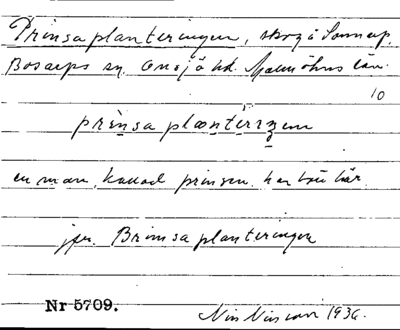 Prinsaplanteringen, skog å Sonnarp.
Bosarps sn. Onsjö hd. Malmöhus län.
10
prìnsa plæntérɪŋen
en man, kallad prinsen, har bott här.
jfr. Brinsaplanteringen
Nr 5709.
1936.